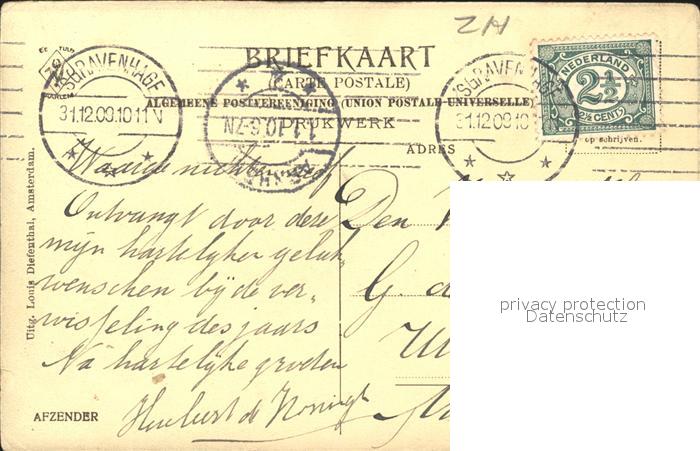 ZH
BRIEFKAART
(CARTE POSTALE)
ALGEMEENE POSTVEREENIGING (UNION POSTALE UNIVERSELLE)
DRUKWERK
ADRES
'SGRAVENHAGE
31.12.09.10-11 V
'SGRAVENHAGE
31.12.09.10
1.1.10.6-7N
NEDERLAND
2½
(2½ CENT)
op schrijven.
Waarde nicht
Ontvangt door deze
mijn hartelijke geluk„
wenschen bij de ver„
wisseling des jaars
Na hartelijke groeten
Huibert de Koningh
AFZENDER
Uitg. Louis Diefenthal, Amsterdam.
Den
G. d
privacy protection
Datenschutz